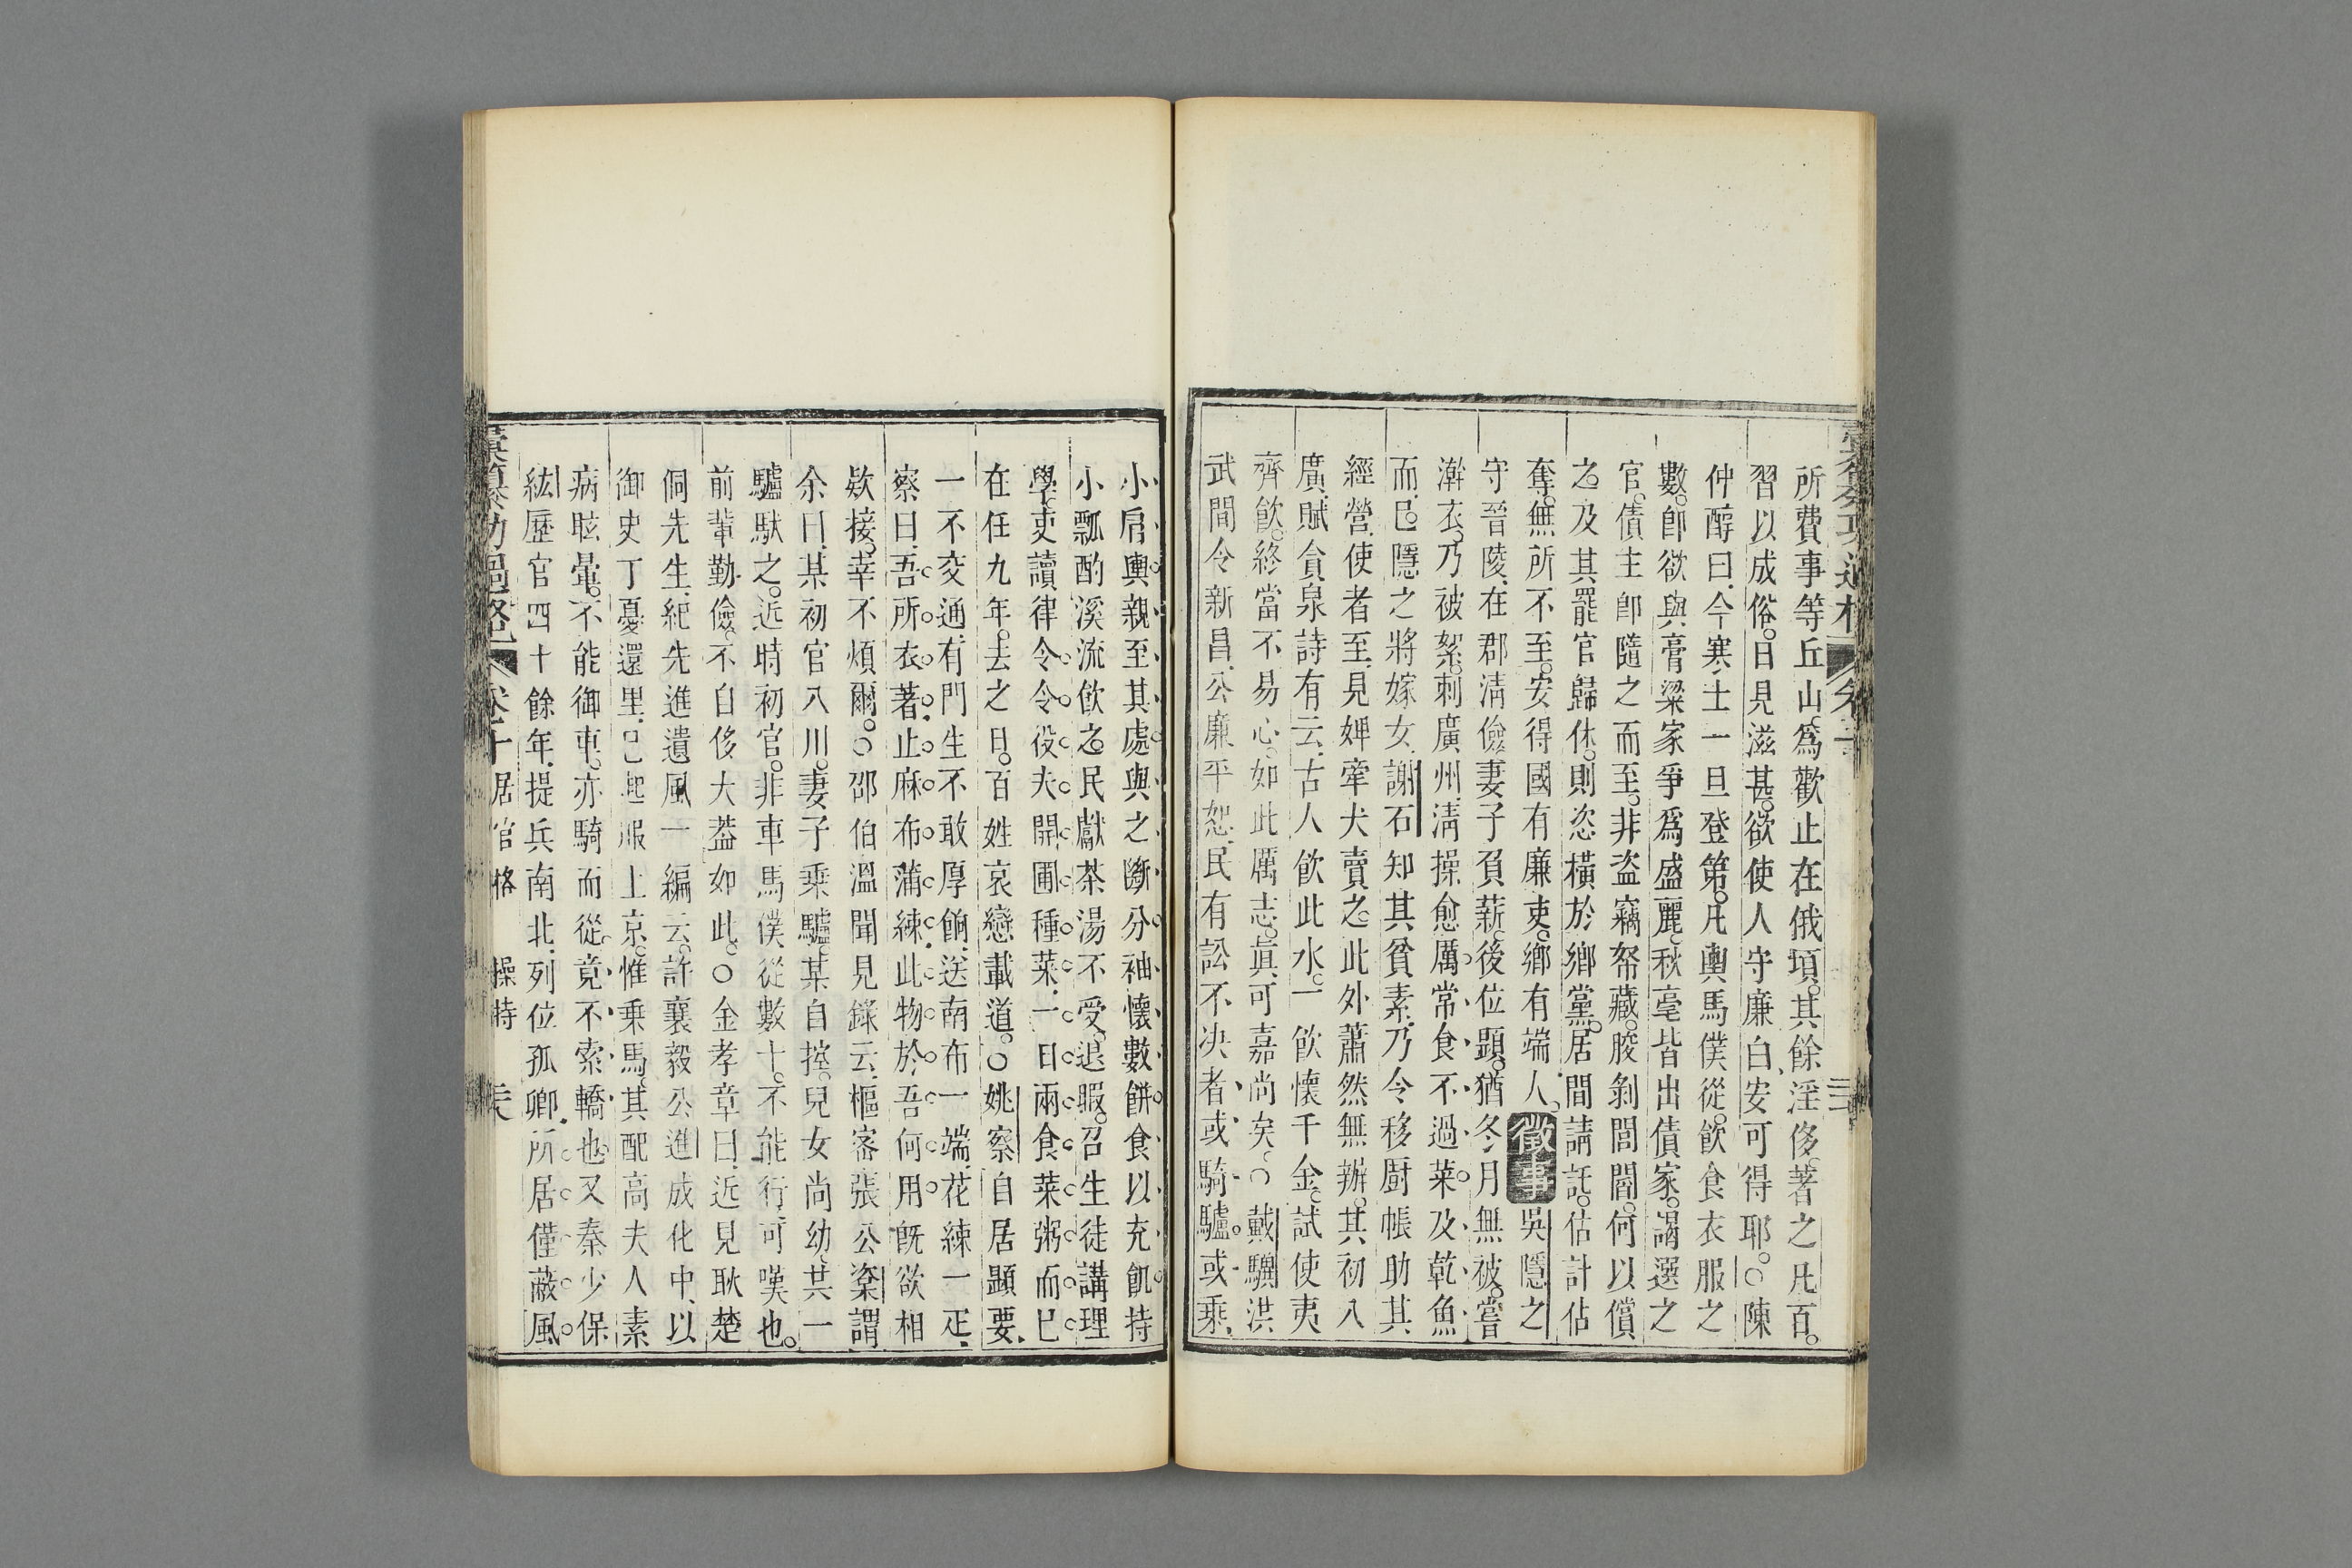 所費事等丘山。爲歡止在俄頃。其餘淫侈。著之凡百。
習以成俗。日見滋甚。欲使人守廉白、安可得耶。○陳
仲醇曰、今寒士一旦登第。凡輿馬僕從。飲食衣服之
數。卽欲與膏粱家爭爲盛麗。秋毫皆出債家。謁選之
官。債主卽隨之而至。非盜竊帑藏。朘剝閭閻。何以償
之。及其罷官歸休。則恣橫於鄉黨。居間請託。估計佔
奪。無所不至。安得國有廉吏。鄉有端人。徵事吳隱之
守晉陵、在郡淸儉。妻子負薪。後位顯。猶冬月無被。嘗
澣衣、乃被絮。刺廣州、淸操愈厲。常食不過菜及乾魚
而已。隱之將嫁女、謝石知其貧素、乃令移厨帳助其
經營、使者至、見婢牽犬賣之。此外蕭然無辦。其初入
廣、賦貪泉詩有云、古人飲此水。一飲懷千金。試使夷
齊飲。終當不易心。如此厲志。眞可嘉尚矣。○戴驥洪
武間令新昌、公廉平恕、民有訟不決者、或騎驢。或乘
小肩輿親至其處與之斷分袖懷數餅食以充飢持
小瓢酌溪流飲之。民獻茶湯不受。退暇。召生徒講理
學。吏讀律令。令役夫開圃種菜。一日兩食菜粥而已
在任九年。去之日。百姓哀戀載道。○姚察自居顯要、
一不交通、有門生不敢厚餉、送南布一端、花練一疋、
察曰、吾所衣著、止麻布蒲練、此物於吾何用旣欲相
欵接、幸不煩爾。○邵伯溫聞見錄云、樞密張公楶謂
余曰、某初官入川。妻子乘驢。某自控。兒女尚幼、共一
驢馱之。近時初官。非車馬僕從數十。不能行、可嘆也。
前輩勤儉。不自侈大葢如此。○金孝章曰、近見耿楚
侗先生、紀先進遺風一編云、許襄毅公進成化中、以
御史丁憂還里、已起服上京。惟乗馬。其配高夫人素
病眩暈。不能御車。亦騎而從。竟不索轎也。又秦少保
紘歷官四十餘年、提兵南北、列位孤卿、所居僅蔽風
居官格 操持